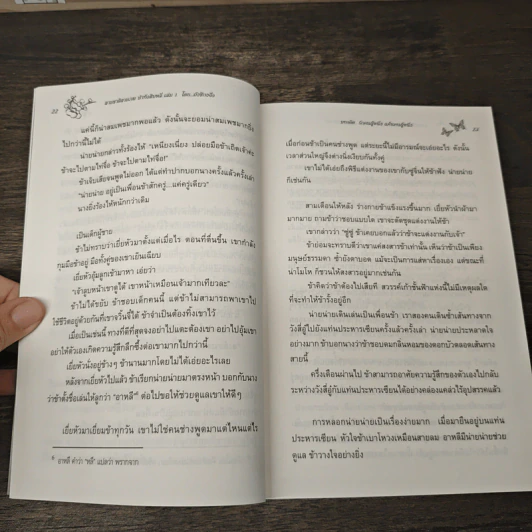 32
แค่นี้ก็น่าสมเพชมากพอแล้ว ดังนั้นจะยอมน่าสมเพชมากยิ่ง
ไปกว่านี้ไม่ได้
น่ายน่ายกล่าวทั้งร้องไห้ "เหนียงเนี่ยง ปล่อยมือข้าเถิดเจ้าค่ะ
ข้าจะไปตามไท่จื่อ ข้าจะไปตามไท่จื่อ!"
ข้าเจ็บเสียจนพูดไม่ออก ได้แต่ทำปากบอกนางครั้งแล้วครั้งเล่า
"น่ายน่าย อยู่เป็นเพื่อนข้าสักครู่...แค่ครู่เดียว"
นางยิ่งร้องไห้หนักกว่าเดิม
เป็นเด็กผู้ชาย
ข้าไม่ทราบว่าเยี่ยหัวมาตั้งแต่เมื่อไร ตอนที่ตื่นขึ้น เขากำลัง
กุมมือข้าอยู่ มือทั้งคู่ของเขาเย็นเฉียบ
เยี่ยหัวอุ้มลูกเข้ามาหา เอ่ยว่า
"เจ้าดูหน้าเขาดูได้ เขาหน้าเหมือนเจ้ามากเทียวละ"
ข้าไม่ได้ขยับ ข้าชอบเด็กคนนี้ แต่ข้าไม่สามารถพาเขาไป
ใช้ชีวิตอยู่ด้วยกันที่เขาจวิ้นจี๋ได้ ข้าจำเป็นต้องทิ้งเขาไว้
เมื่อเป็นเช่นนี้ ทางที่ดีที่สุดจงอย่าไปแตะต้องเขา อย่าไปอุ้มเขา
อย่าให้ตัวเองเกิดความรู้สึกลึกซึ้งต่อเขามากไปกว่านี้
เยี่ยหัวนั่งอยู่ข้างๆ ข้านานมากโดยไม่ได้เอ่ยอะไรเลย
หลังจากเยี่ยหัวไปแล้ว ข้าเรียกน่ายน่ายมาตรงหน้า บอกกับนาง
ว่าข้าตั้งชื่อเล่นให้ลูกว่า "อาหลี⁶" ต่อไปขอให้ช่วยดูแลเขาให้ดีๆ
เยี่ยหัวมาเยี่ยมข้าทุกวัน เขาไม่ใช่คนช่างพูดมาแต่ไหนแต่ไร
6 อาหลี คำว่า "หลี" แปลว่า พรากจาก
33
เมื่อก่อนข้าเป็นคนช่างพูด แต่ระยะนี้ไม่มีอารมณ์จะเอ่ยอะไร ดังนั้น
เวลาส่วนใหญ่จึงต่างนิ่งเงียบกันทั้งคู่
เขาไม่ได้เอ่ยถึงพิธีแต่งงานของเขากับซู่จิ่นให้ข้าฟัง น่ายน่าย
ก็เช่นกัน
สามเดือนให้หลัง ร่างกายข้าแข็งแรงขึ้นมาก เยี่ยหัวนำผ้ามา
มากมาย ถามข้าว่าชอบแบบใด เขาจะตัดชุดแต่งงานให้ข้า
เขากล่าวว่า "ซู่ซู่ ข้าเคยบอกแล้วว่าข้าจะแต่งงานกับเจ้า"
ข้าย่อมจะทราบดีว่าเขาแค่สงสารข้าเท่านั้น เห็นว่าข้าเป็นเพียง
มนุษย์ธรรมดา ซ้ำยังตาบอด แม้จะเป็นการแส่หาเรื่องเอง แต่ขณะที่
น่าโมโห ก็ชวนให้สงสารอยู่มากเช่นกัน
ข้าคิดว่าข้าต้องไปเสียที สวรรค์เก้าชั้นฟ้าแห่งนี้ไม่มีเหตุผลใด
ที่จะทำให้ข้ารั้งอยู่อีก
น่ายน่ายเดินเล่นเป็นเพื่อนข้า เราสองคนเดินซ้ำเส้นทางจาก
วังสี่อู๋ไปยังแท่นประหารเซียนครั้งแล้วครั้งเล่า น่ายน่ายประหลาดใจ
อย่างมาก ข้าบอกนางว่าข้าชอบดมกลิ่นหอมของดอกบัวตลอดเส้นทาง
สายนี้
ครึ่งเดือนผ่านไป ข้าสามารถอาศัยความรู้สึกของตัวเองไปกลับ
ระหว่างวังสี่อู๋กับแท่นประหารเซียนได้อย่างคล่องแคล่วไร้อุปสรรคแล้ว
การหลอกน่ายน่ายเป็นเรื่องง่ายมาก เมื่อมายืนอยู่บนแท่น
ประหารเซียน หัวใจข้าเบาโหวงเหมือนสายลม อาหลีมีน่ายน่ายช่วย
ดูแล ข้าวางใจอย่างยิ่ง